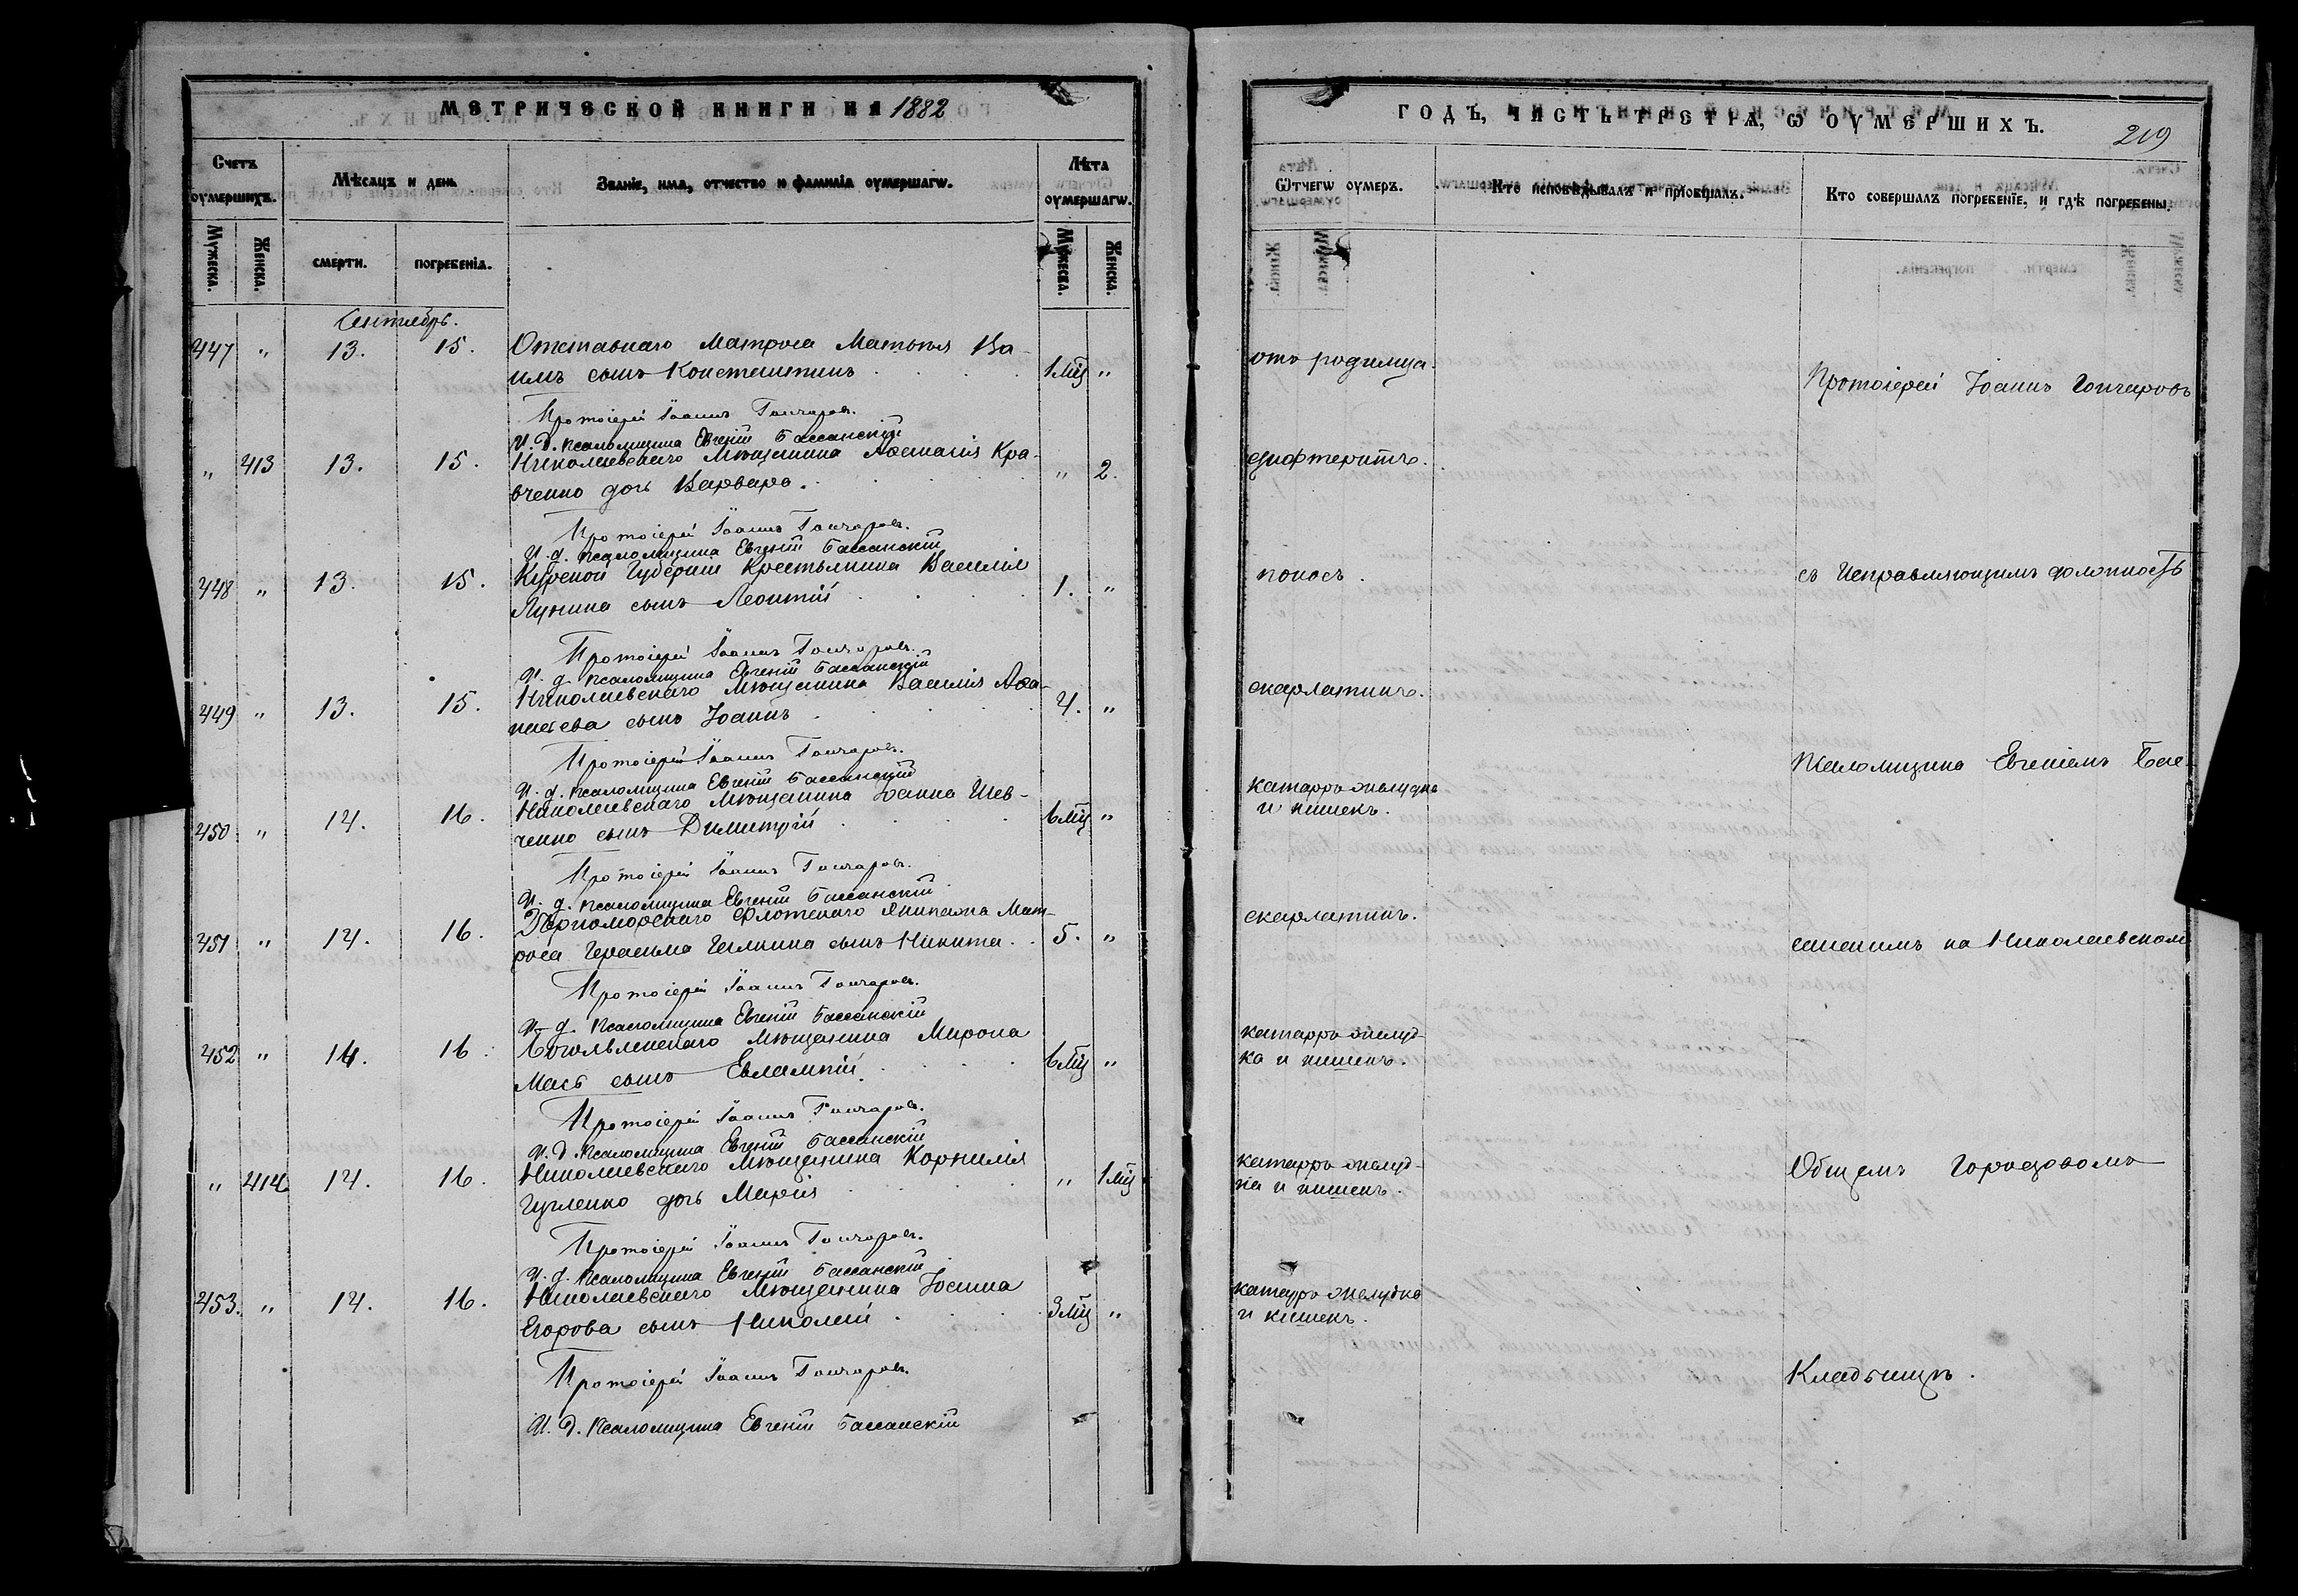 МЕТРИЧЕСКОЙ КНИГИ НА 1882
Счетъ оумершихъ.
Мѣсяцъ и день
Званіе, имя, отчество и фамилія оумершагѡ.
Лѣта оумершагѡ.
Мужеска. Женска. смерти. погребенія. Мужеска. Женска.
Сентябрь.
447 " 13. 15. Отставнаго Матроса Матвѣя Ва-
имъ сынъ Константинъ 1 мц "
Протоіерей Іоаннъ Гончаровъ.
И. д. псаломщика Евгеній Бассанскій
" 413 13. 15. Николаевскаго Мѣщанина Аѳанасія Кра-
вченко дочь Варвара. " 2.
Протоіерей Іоаннъ Гончаровъ.
И. д. псаломщика Евгеній Бассанскій
448 " 13. 15. Курской Губерніи Крестьянина Василія
Лунина сынъ Леонтій 1. "
Протоіерей Іоаннъ Гончаровъ.
И. д. псаломщика Евгеній Бассанскій
449 " 13. 15. Николаевскаго Мѣщанина Василія Аѳа-
насьева сынъ Іоаннъ 4. "
Протоіерей Іоаннъ Гончаровъ.
И. д. псаломщика Евгеній Бассанскій
450 " 14. 16. Николаевскаго Мѣщанина Іоанна Шев-
ченко сынъ Димитрій 6 мц "
Протоіерей Іоаннъ Гончаровъ.
И. д. псаломщика Евгеній Бассанскій
451 " 14. 16. Черноморскаго Флотскаго Экипажа Мат-
роса Герасима сынъ Никита 5. "
Протоіерей Іоаннъ Гончаровъ.
И. д. псаломщика Евгеній Бассанскій
452 " 14. 16. Богоявленскаго Мѣщанина Мирона
сынъ Евлампій 6 мц "
Протоіерей Іоаннъ Гончаровъ.
И. д. псаломщика Евгеній Бассанскій
" 414 14. 16. Николаевскаго Мѣщанина Корнилія
дочь Марія " 1 мц
Протоіерей Іоаннъ Гончаровъ.
И. д. псаломщика Евгеній Бассанскій
453. " 14. 16. Николаевскаго Мѣщанина Іоанна
Егорова сынъ Николай 3 мц "
Протоіерей Іоаннъ Гончаровъ.
И. д. псаломщика Евгеній Бассанскій
ГОДЪ, ЧАСТЬ ТРЕТЯ, Ѡ ОУМЕРШИХЪ.
219
Ѿчегѡ оумеръ.
Кто исповѣдывалъ и пріобщалъ.
Кто совершалъ погребеніе, и гдѣ погребены.
отъ родимца.
Протоіерей Іоаннъ Гончаровъ
дифтеритъ.
поносъ.
съ Исправляющимъ должность
скарлатинъ.
Псаломщика Евгеніемъ Бас-
катарръ желудка
и кишекъ.
скарлатинъ.
санскимъ на Николаевскомъ
катарръ желуд-
ка и кишекъ.
катарръ желуд-
ка и кишекъ.
Общемъ Городовомъ
катарръ желудка
и кишекъ.
Кладбищѣ.